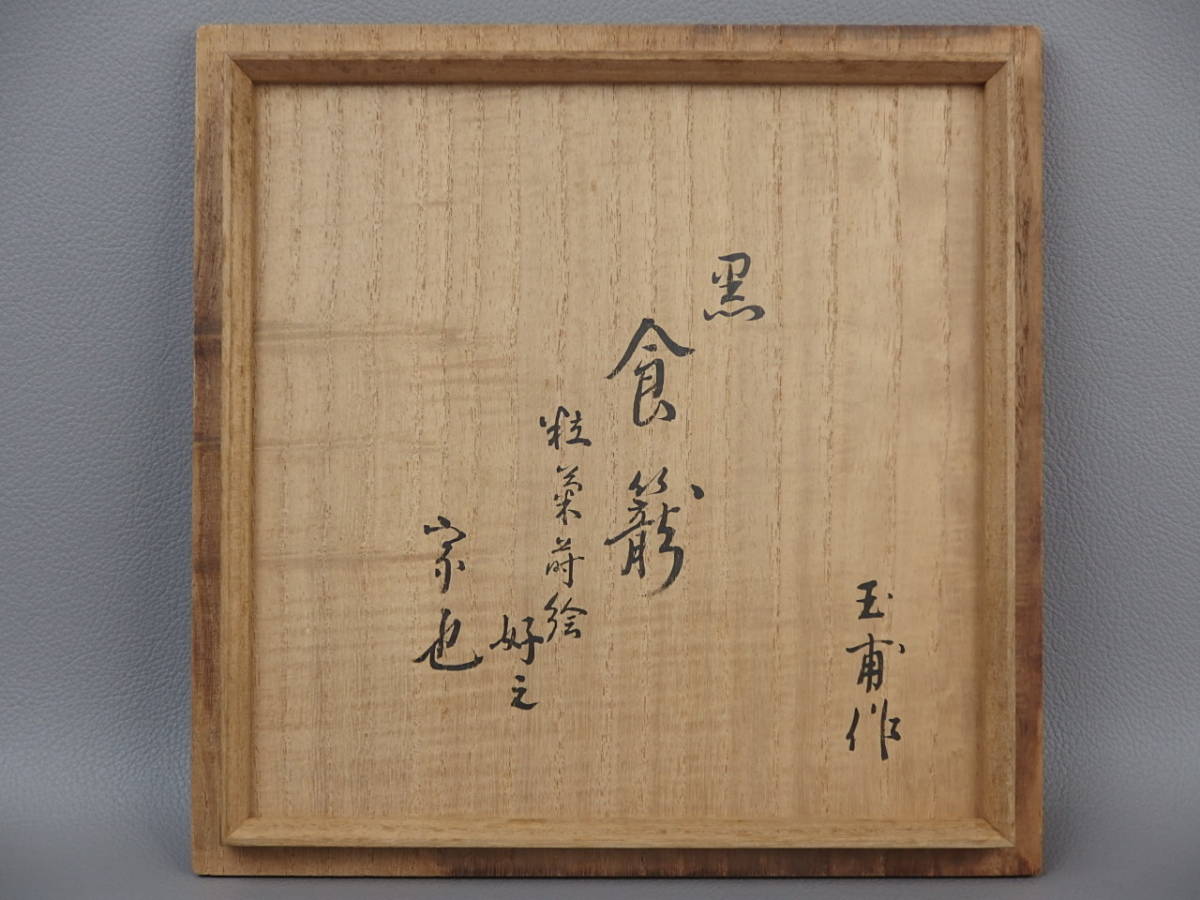 玉甫作
黒
食籠
粒菊蒔絵
好之
宗也